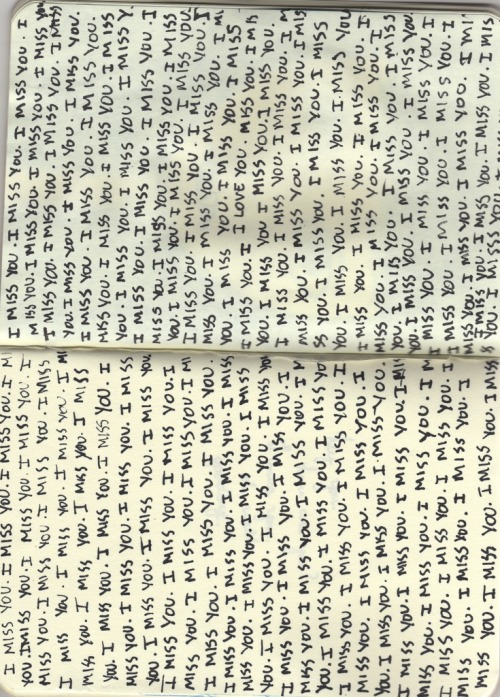 I MISS YOU. I MISS YOU. I MISS YOU. I MI
YOU. I MISS YOU. I MISS YOU. I MISS YOU. I
MISS YOU. I MISS YOU. I MISS YOU. I MISS
I MISS YOU. I MISS YOU. I MISS YOU. I MI
MISS YOU. I MISS YOU. I MISS YOU. I MISS
YOU. I MISS YOU. I MISS YOU. I MISS YOU. I
MISS YOU. I MISS YOU. I MISS YOU. I MISS
YOU. I MISS YOU. I MISS YOU. I MISS YOU
I MISS YOU. I MISS YOU. I MISS YOU. I
MISS YOU. I MISS YOU. I MISS YOU. I MI
I MISS YOU. I MISS YOU. I MISS YOU.
I MISS YOU. I MISS YOU. I MISS YOU. I MISS
MISS YOU. I MISS YOU. I MISS YOU. I MISS
YOU. I MISS YOU. I MISS YOU. I MISS YOU
I MISS YOU. I MISS YOU. I MISS YOU. I
MISS YOU. I MISS YOU. I MISS YOU. I M
YOU. I MISS YOU. I MISS YOU. I MISS YOU
I MISS YOU. I MISS YOU. I MISS YOU.
MISS YOU. I MISS YOU. I MISS YOU. I
YOU. I MISS YOU. I MISS YOU. I MISS YOU.
I MISS YOU. I MISS YOU. I MISS YOU. I MISS
MISS YOU. I MISS YOU. I MISS YOU. I M
I MISS YOU. I MISS YOU. I MISS YOU. I
MISS YOU. I MISS YOU. I MISS YOU. I
MISS YOU. I MISS YOU. I MISS YOU. I MISS
I MISS YOU. I MISS YOU. I MISS YOU. I
MISS YOU. I MISS YOU. I MISS YOU. I MISS YOU
I MISS YOU. I MISS YOU. I MISS YOU. I MISS
YOU. I MISS YOU. I MISS YOU. I MISS YOU.
I MISS YOU. I MISS YOU. I MISS YOU.
MISS YOU. I MISS YOU. I MISS YOU. I MISS
YOU. I MISS YOU. I MISS YOU. I MISS Y
I MISS YOU. I MISS YOU. I MISS YOU. I
MISS YOU. I MISS YOU. I MISS YOU. I MISS
YOU. I MISS YOU. I MISS YOU. I MISS YOU.
I MISS YOU. I MISS YOU. I MISS YOU. I
MISS YOU. I MISS YOU. I MISS YOU. I MI
YOU. I MISS YOU. I MISS YOU. I MISS
I MISS YOU. I LOVE YOU. MISS YOU. I MI
YOU. I MISS YOU. I MISS YOU. I MISS YOU.
I MISS YOU. I MISS YOU. I MISS YOU. I M
MISS YOU. I MISS YOU. I MISS YOU. I MIS
YOU. I MISS YOU. I MISS YOU. I MISS
YOU. I MISS YOU. I MISS YOU. I MISS YOU
I MISS YOU. I MISS YOU. I MISS YOU. I
MISS YOU. I MISS YOU. I MISS YOU. I
YOU. I MISS YOU. I MISS YOU. I MISS
YOU. I MISS YOU. I MISS YOU. I MISS YOU.
I MISS YOU. I MISS YOU. I MISS YOU. I
I MISS YOU. I MISS YOU. I MISS YOU. I
MISS YOU. I MISS YOU. I MISS YOU. I MI
MISS YOU. I MISS YOU. I MISS YOU. I MIS